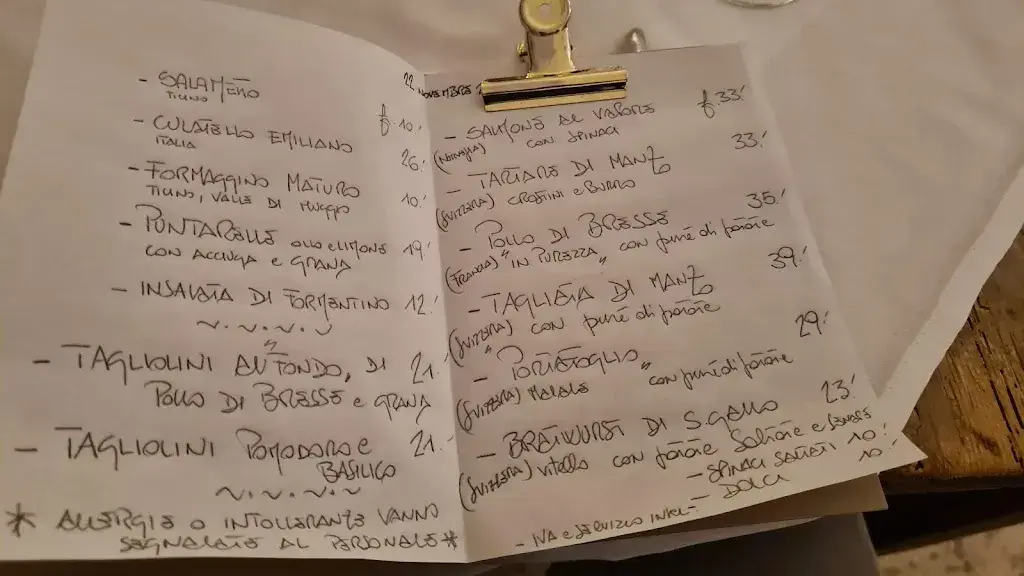 - SALAMEÑO
TICINO
- CULATELLO EMILIANO fr 10.-
ITALIA
- FORMAGGINO MATURO 26.-
TICINO, VALLE DI MUGGIO 10.-
- PUNTARELLE
CON ACCIUGA E GRANA 19.-
- INSALATA DI FORMENTINO 12.-
~.~.~.~
- TAGLIOLINI AL "FONDO" DI 21.-
POLLO DI BRESSE E GRANA
- TAGLIOLINI POMODORO E 21.-
BASILICO
~.~.~.~
* ALLERGIE O INTOLLERANZE VANNO
SEGNALATE AL PERSONALE *
22 NOVEMBRE
- SALMONE AL VAPORE fr 33.-
(NORVEGIA) CON SPINACI
- TARTARE DI MANZO 33.-
(SVIZZERA) CROSTINI E BURRO
- POLLO DI BRESSE 35.-
(FRANCIA) "IN PUREZZA" con puré di patate
- TAGLIATA DI MANZO 39.-
(SVIZZERA) con puré di patate
- "PORTAFOGLIO" 29.-
(SVIZZERA) MAIALE con puré di patate
- BRATWURST DI S.GALLO 23.-
(SVIZZERA) vitello con patate saltate e
- SPINACI SALTATI 10.-
- DOLCI 10.-
- IVA E SERVIZIO INCL.-